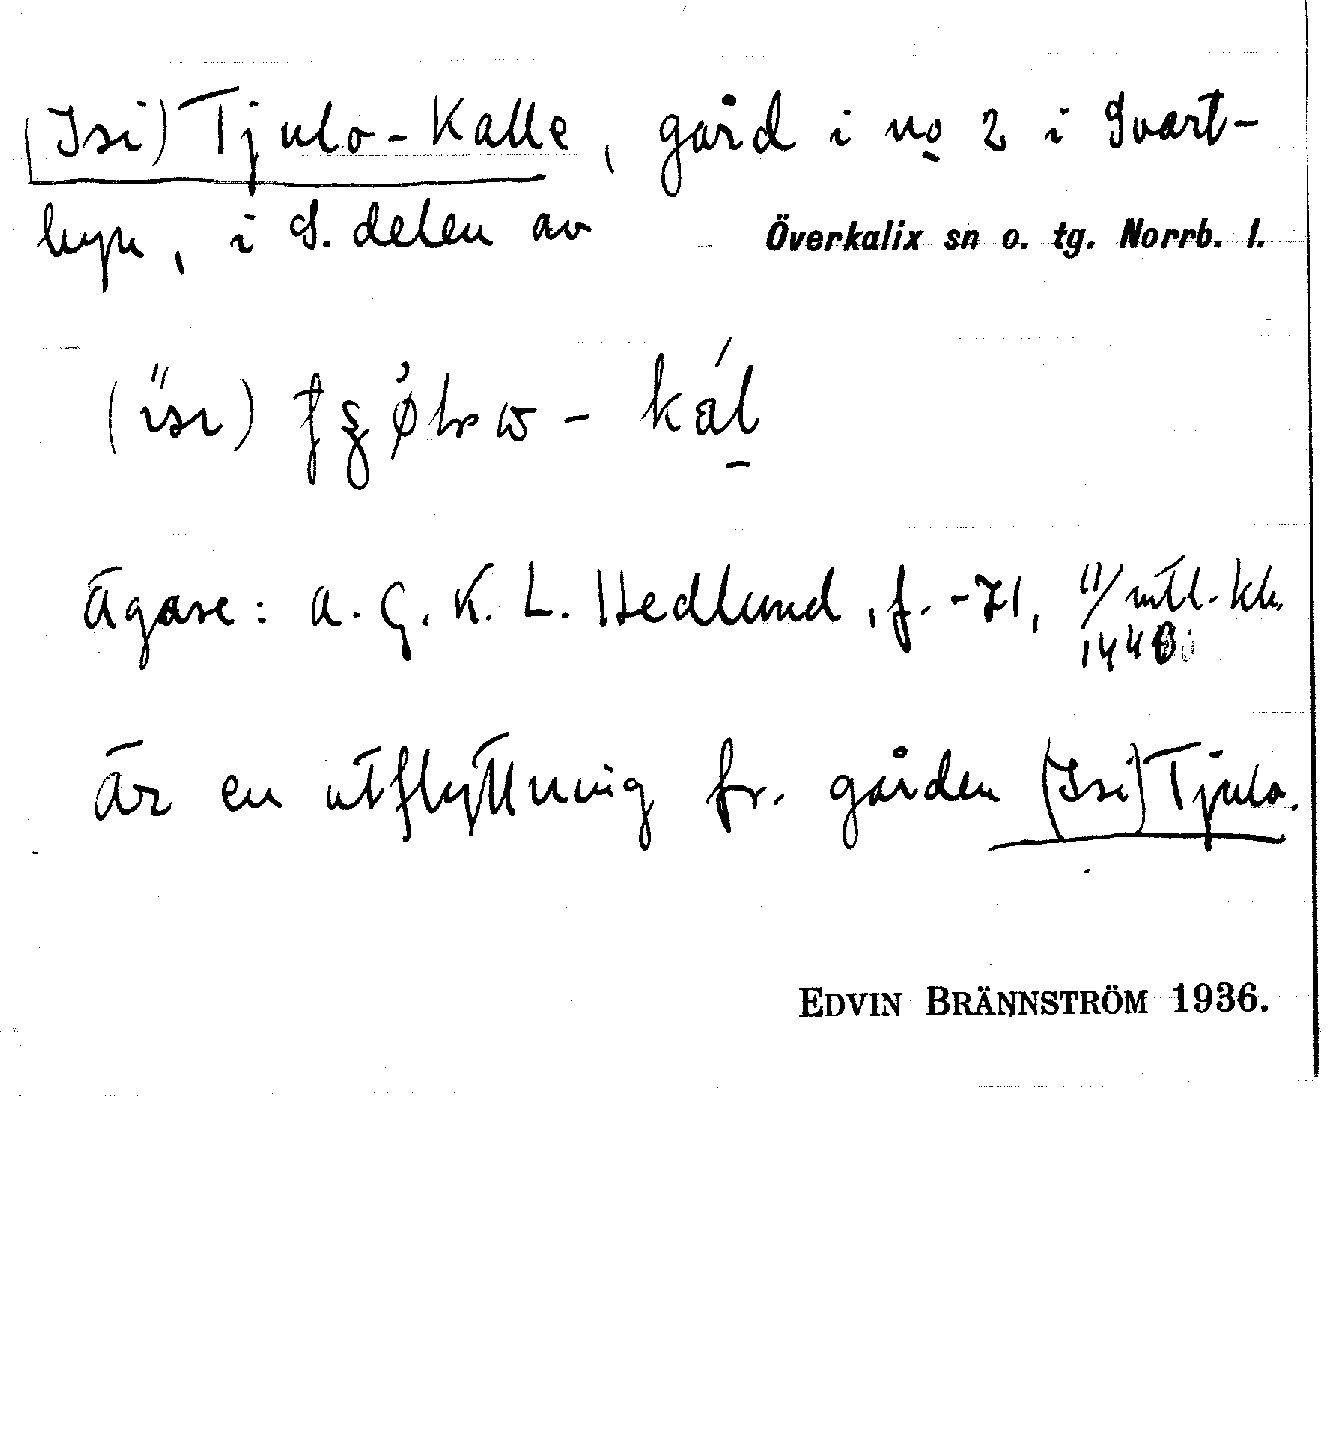 (Isi) Tjulo-Kalle, gård i no 2 i Svart-
byn, i S. delen av Överkalix sn o. tg. Norrb. l.
Ägare: A. G. K. L. Hedlund, f. -71, 11/1440 mtl. kh.
Är en utflyttning fr. gården (Isi) Tjulo.
EDVIN BRÄNNSTRÖM 1936.